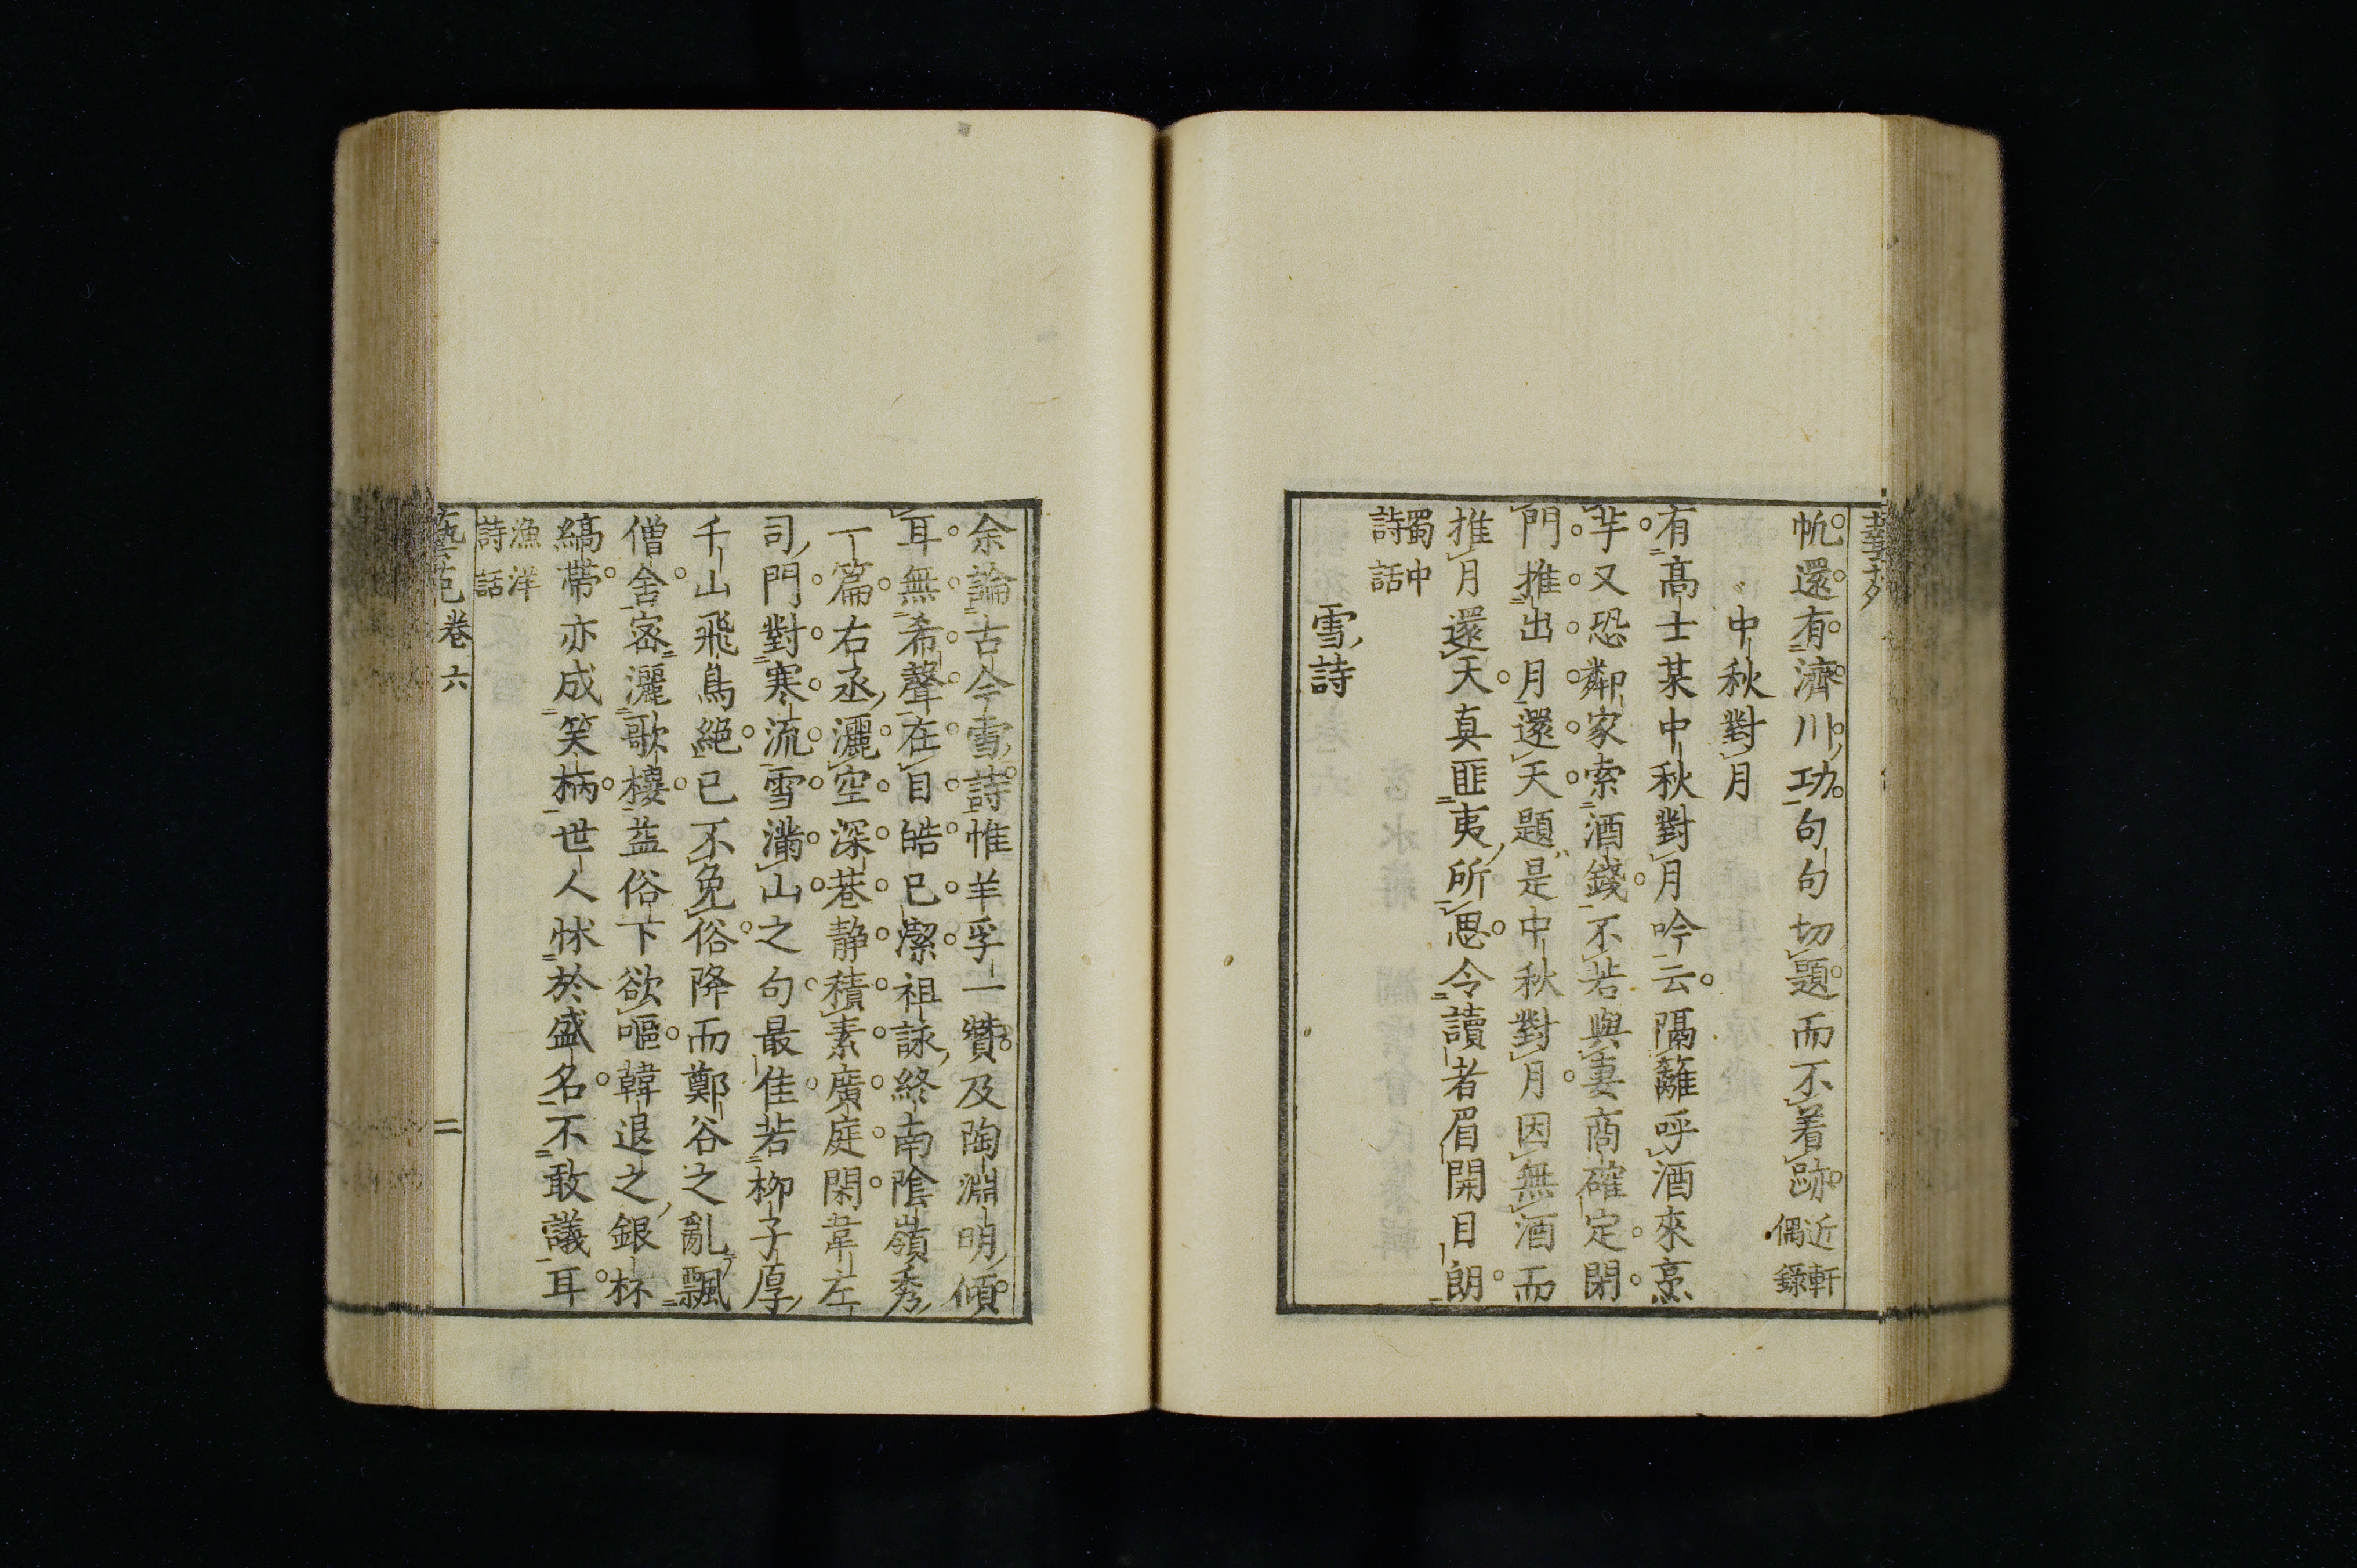 帆還有濟川功句句切題而不着跡近軒偶錄
中秋對月
有高士某中秋對月吟云隔籬呼酒來烹
芋又恐鄰家索酒錢不若與妻商確定閉
門推出月還天題是中秋對月因無酒而
推月還天真匪夷所思令讀者眉開目朗
蜀中詩話
雪詩
余論古今雪詩惟羊孚一贊及陶淵明傾
耳無希聲在目皓已潔祖詠終南陰嶺秀
一篇右丞灑空深巷静積素廣庭閑韋左
司門對寒流雪滿山之句最佳若柳子厚
千山飛鳥絕已不免俗降而鄭谷之亂飄
僧舍密灑歌樓益俗下欲嘔韓退之銀杯
縞帶亦成笑柄世人怵於盛名不敢議耳
漁洋詩話
藝苑卷六
二